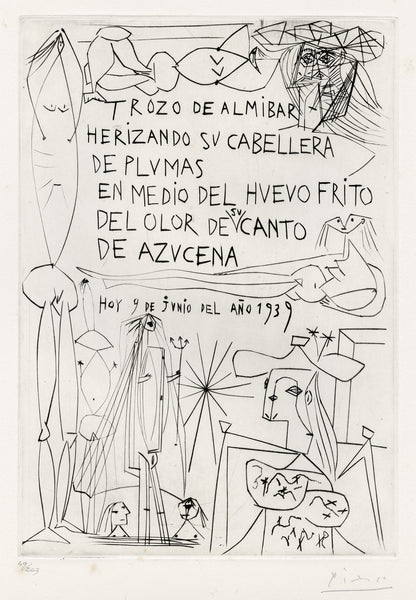 TROZO DE ALMIBAR
HERIZANDO SV CABELLERA
DE PLVMAS
EN MEDIO DEL HVEVO FRITO
DEL OLOR DE SV CANTO
DE AZVCENA
HOY 9 DE JVNIO DEL AÑO 1939
Picasso